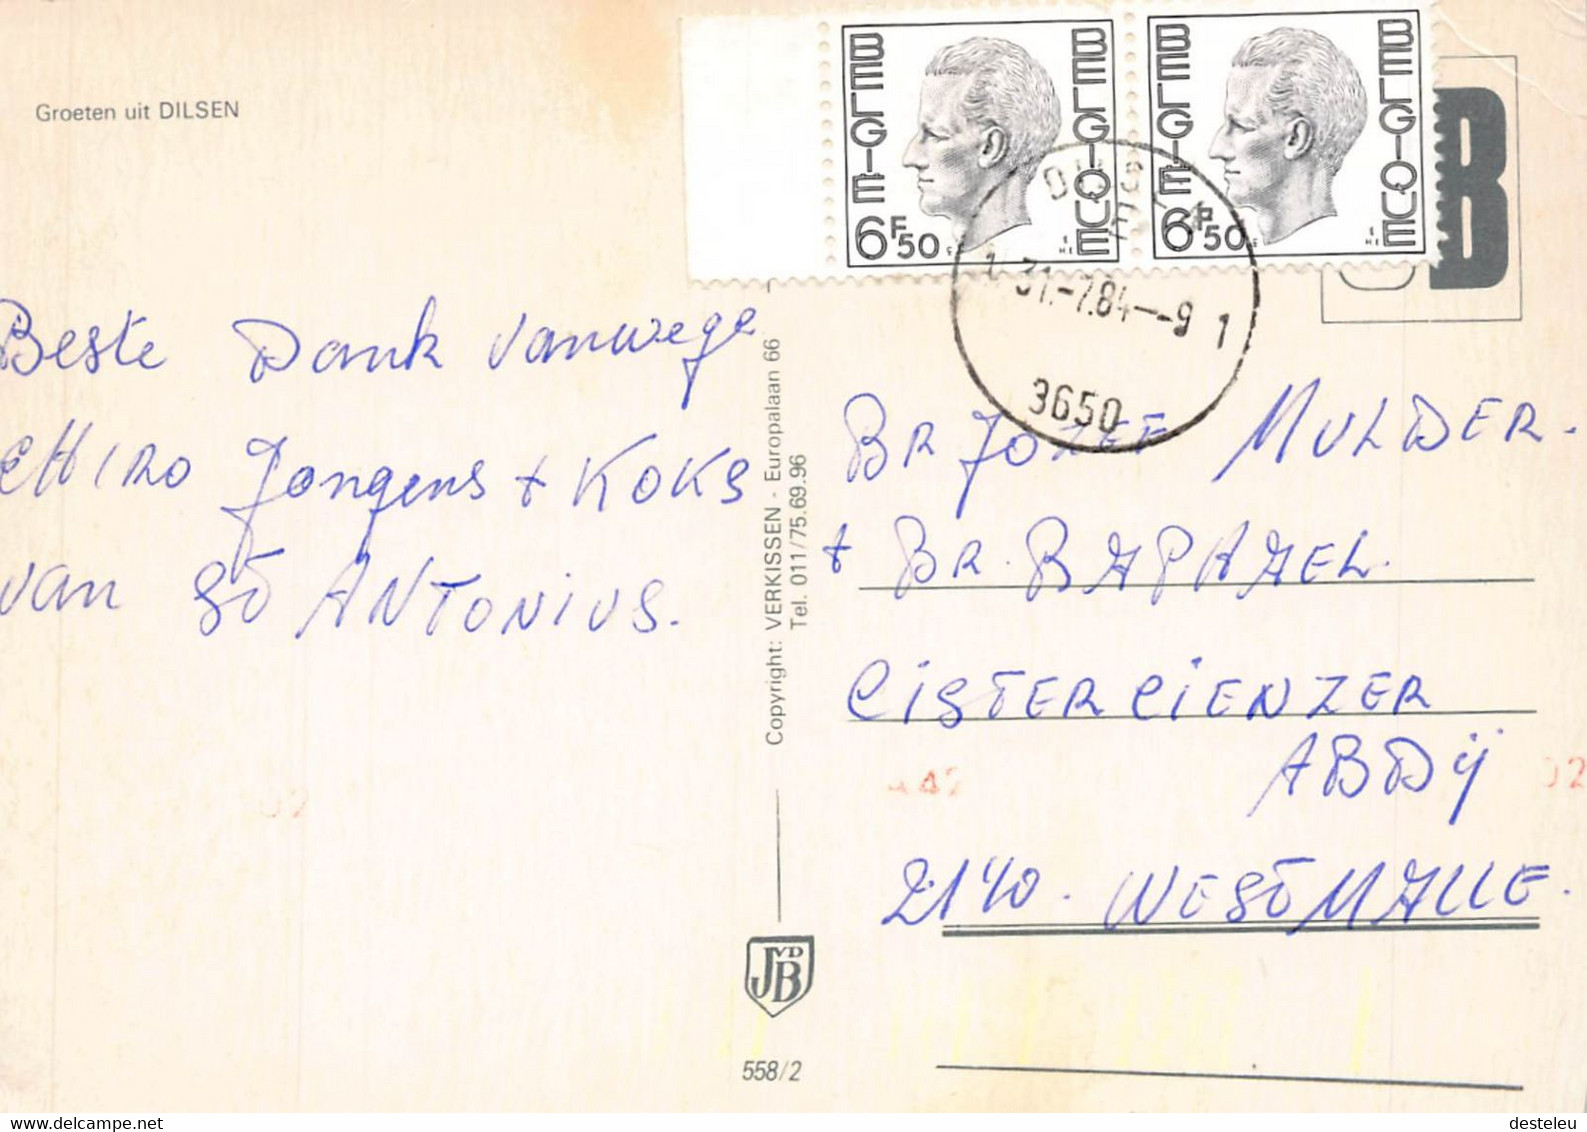 Groeten uit DILSEN
BELGIE
BELGIQUE
6F50
BELGIE
BELGIQUE
6F50
B
31.-7.84--9
1
3650
Beste Dank vanwege
CHIRO Jongens + KOKS
van ST ANTONIUS.
Copyright: VERKISSEN - Europalaan 66
Tel. 011/75.69.96
BR JOZEF MULDER.
+ BR. RAPHAEL.
CISTERCIENZER
ABDIJ
2140. WESTMALLE.
42
02
02
JVDB
558/2
desteleu